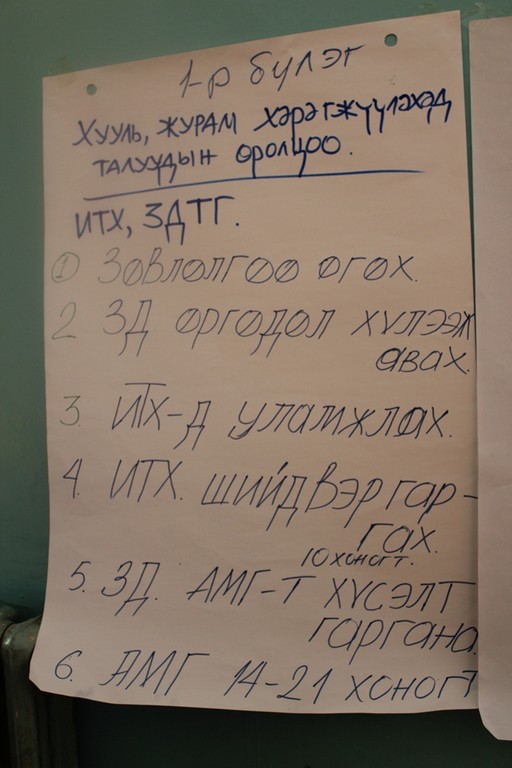 1-р бүлэг
Хууль, журам хэрэгжүүлэхэд
талуудын оролцоо.
ИТХ, ЗДТГ.
1 Зөвлөлгөө өгөх.
2 ЗД өргөдөл хүлээж
авах.
3. ИТХ-д уламжлах.
4. ИТХ. шийдвэр гар-
гах.
10 хоногт.
5. ЗД. АМГ-т хүсэлт
гаргана.
6. АМГ 14-21 хоногт